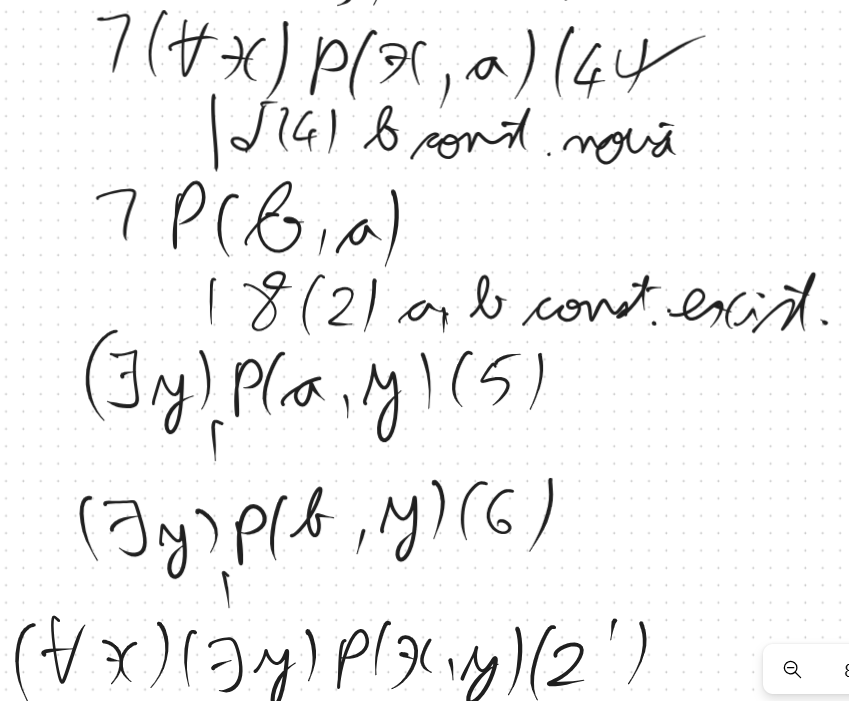 ⅂(∀x) P(x, a) (4)✓
| δ(4) b const. nouă
⅂ P(b, a)
| γ(2) a, b const. exist.
(∃y) P(a, y) (5)
|
(∃y) P(b, y) (6)
|
(∀x)(∃y) P(x, y) (2')
8